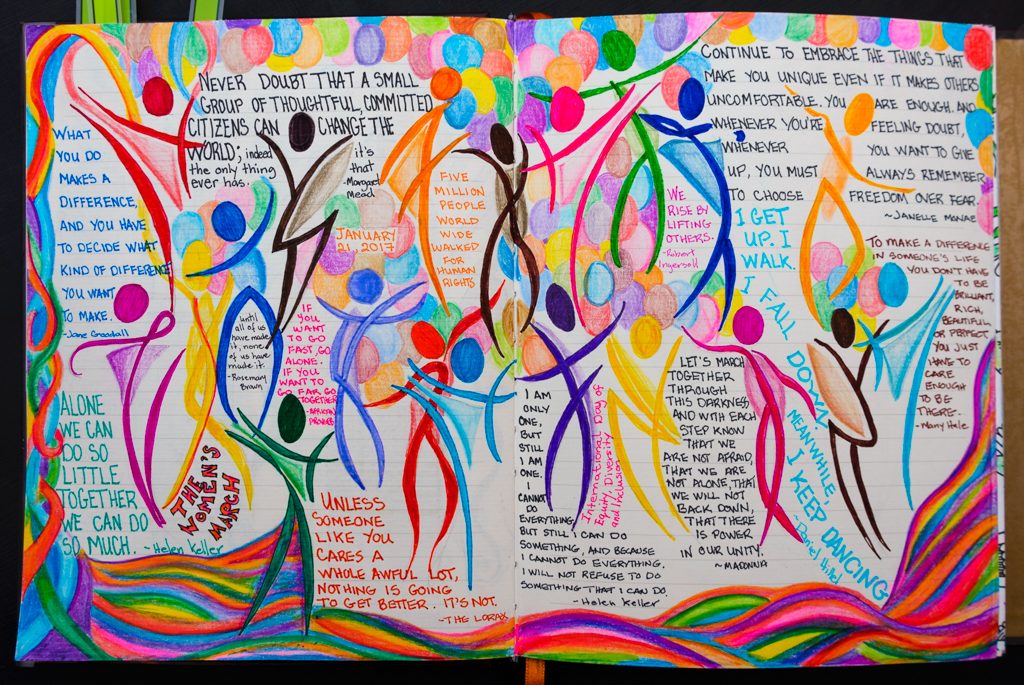 NEVER DOUBT THAT A SMALL
GROUP OF THOUGHTFUL, COMMITTED
CITIZENS CAN CHANGE THE
WORLD; indeed it's
the only thing that
ever has. -Margaret
Mead
WHAT
YOU DO
MAKES A
DIFFERENCE,
AND YOU HAVE
TO DECIDE WHAT
KIND OF DIFFERENCE
YOU WANT
TO MAKE.
Jane Goodall
ALONE
WE CAN
DO SO
LITTLE
TOGETHER
WE CAN DO
SO MUCH. ~Helen Keller
THE
WOMEN'S
MARCH
until
all of us
have made
it, none
of us have
made it.
-Rosemary
Brown
IF
YOU
WANT
TO GO
FAST, GO
ALONE.
IF YOU
WANT TO
GO FAR GO
TOGETHER
-AFRICAN
PROVERB
JANUARY
21, 2017
FIVE
MILLION
PEOPLE
WORLD
WIDE
WALKED
FOR
HUMAN
RIGHTS
UNLESS
SOMEONE
LIKE YOU
CARES A
WHOLE AWFUL LOT,
NOTHING IS GOING
TO GET BETTER. IT'S NOT.
~THE LORAX
CONTINUE TO EMBRACE THE THINGS THAT
MAKE YOU UNIQUE EVEN IF IT MAKES OTHERS
UNCOMFORTABLE. YOU ARE ENOUGH. AND
WHENEVER YOU'RE FEELING DOUBT,
WHENEVER YOU WANT TO GIVE
UP, YOU MUST ALWAYS REMEMBER
TO CHOOSE FREEDOM OVER FEAR.
~JANELLE MONAE
WE
RISE BY
LIFTING
OTHERS.
-Robert
Ingersoll
I GET
UP. I
WALK.
I FALL
DOWN
MEANWHILE
I KEEP DANCING
Daniel Hillel
TO MAKE A DIFFERENCE
IN SOMEONE'S LIFE
YOU DON'T HAVE
TO BE
BRILLIANT,
RICH,
BEAUTIFUL,
OR PERFECT.
YOU JUST
HAVE TO
CARE
ENOUGH
TO BE
THERE.
-Mary Hale
LET'S MARCH
TOGETHER
THROUGH
THIS DARKNESS,
AND WITH EACH
STEP KNOW
THAT WE
ARE NOT AFRAID,
THAT WE ARE
NOT ALONE, THAT
WE WILL NOT
BACK DOWN,
THAT THERE
IS POWER
IN OUR UNITY.
~MADONNA
I AM
ONLY
ONE,
BUT
STILL
I AM
ONE.
I
CANNOT
DO
EVERYTHING,
BUT STILL I CAN DO
SOMETHING, AND BECAUSE
I CANNOT DO EVERYTHING.
I WILL NOT REFUSE TO DO
SOMETHING THAT I CAN DO.
-Helen Keller
International Day of
Equity, Diversity
and Inclusion